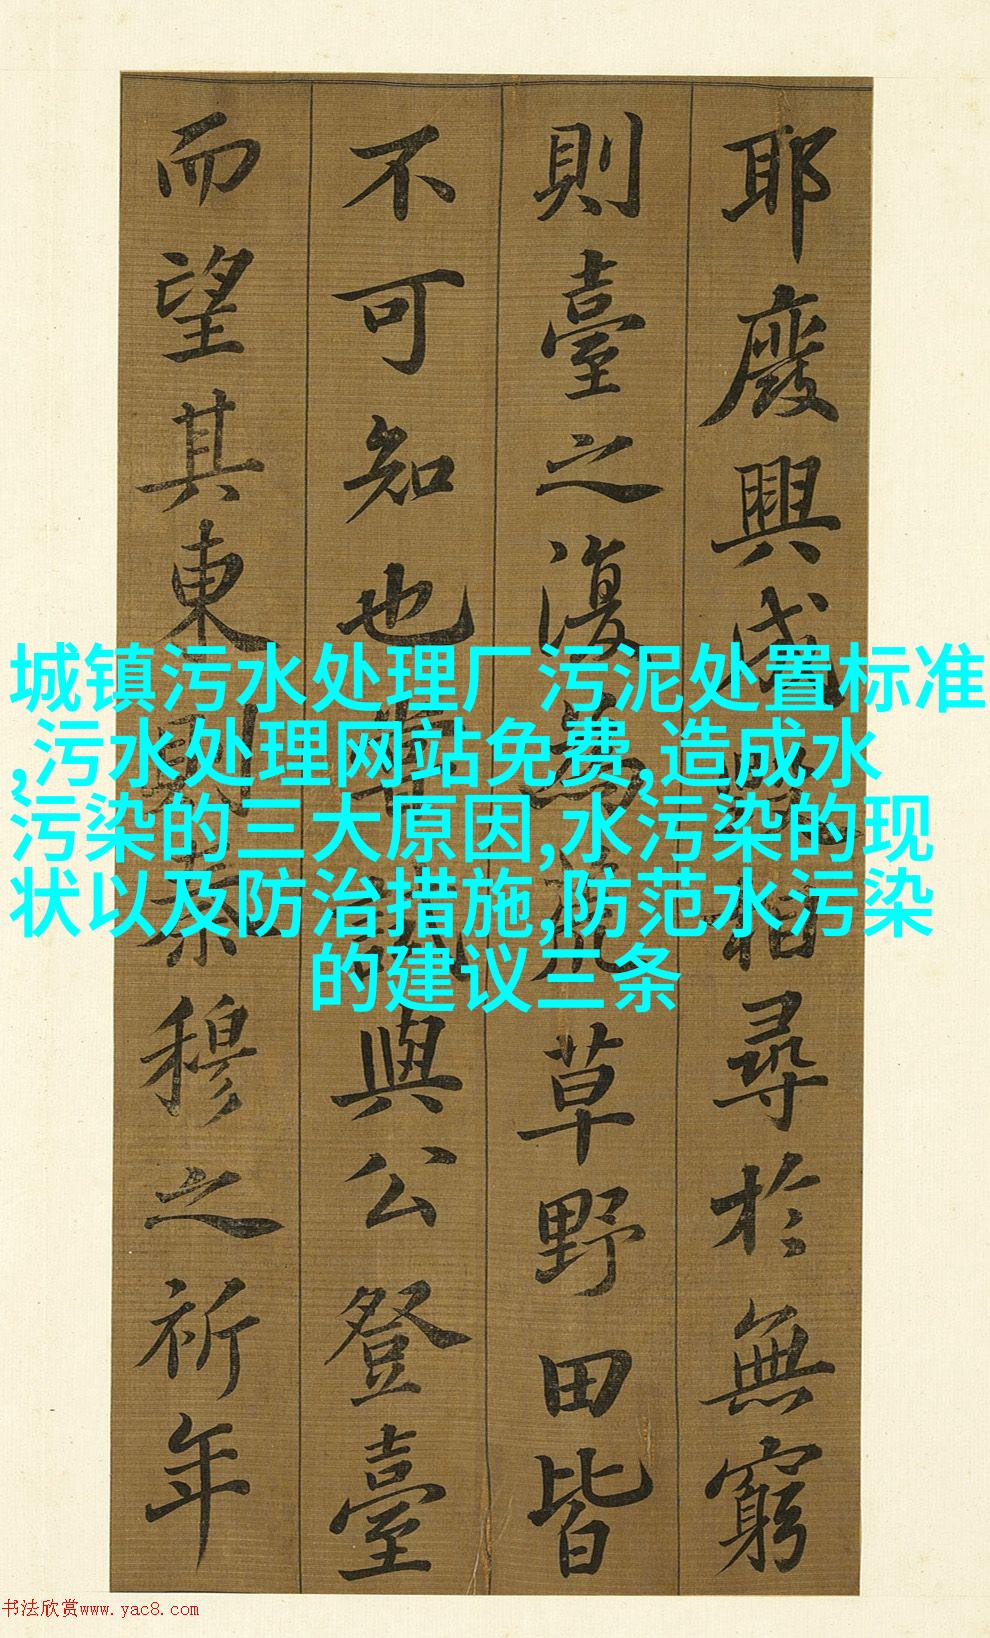 耶廢興成毀相尋於無窮
則臺之復為荒草野田皆
不可知也嘗試與公登臺
而望其東則秦穆之祈年
城镇污水处理厂污泥处置标准
,污水处理网站免费,造成水
污染的三大原因,水污染的现
状以及防治措施,防范水污染
的建议三条
书法欣赏www.yac8.com